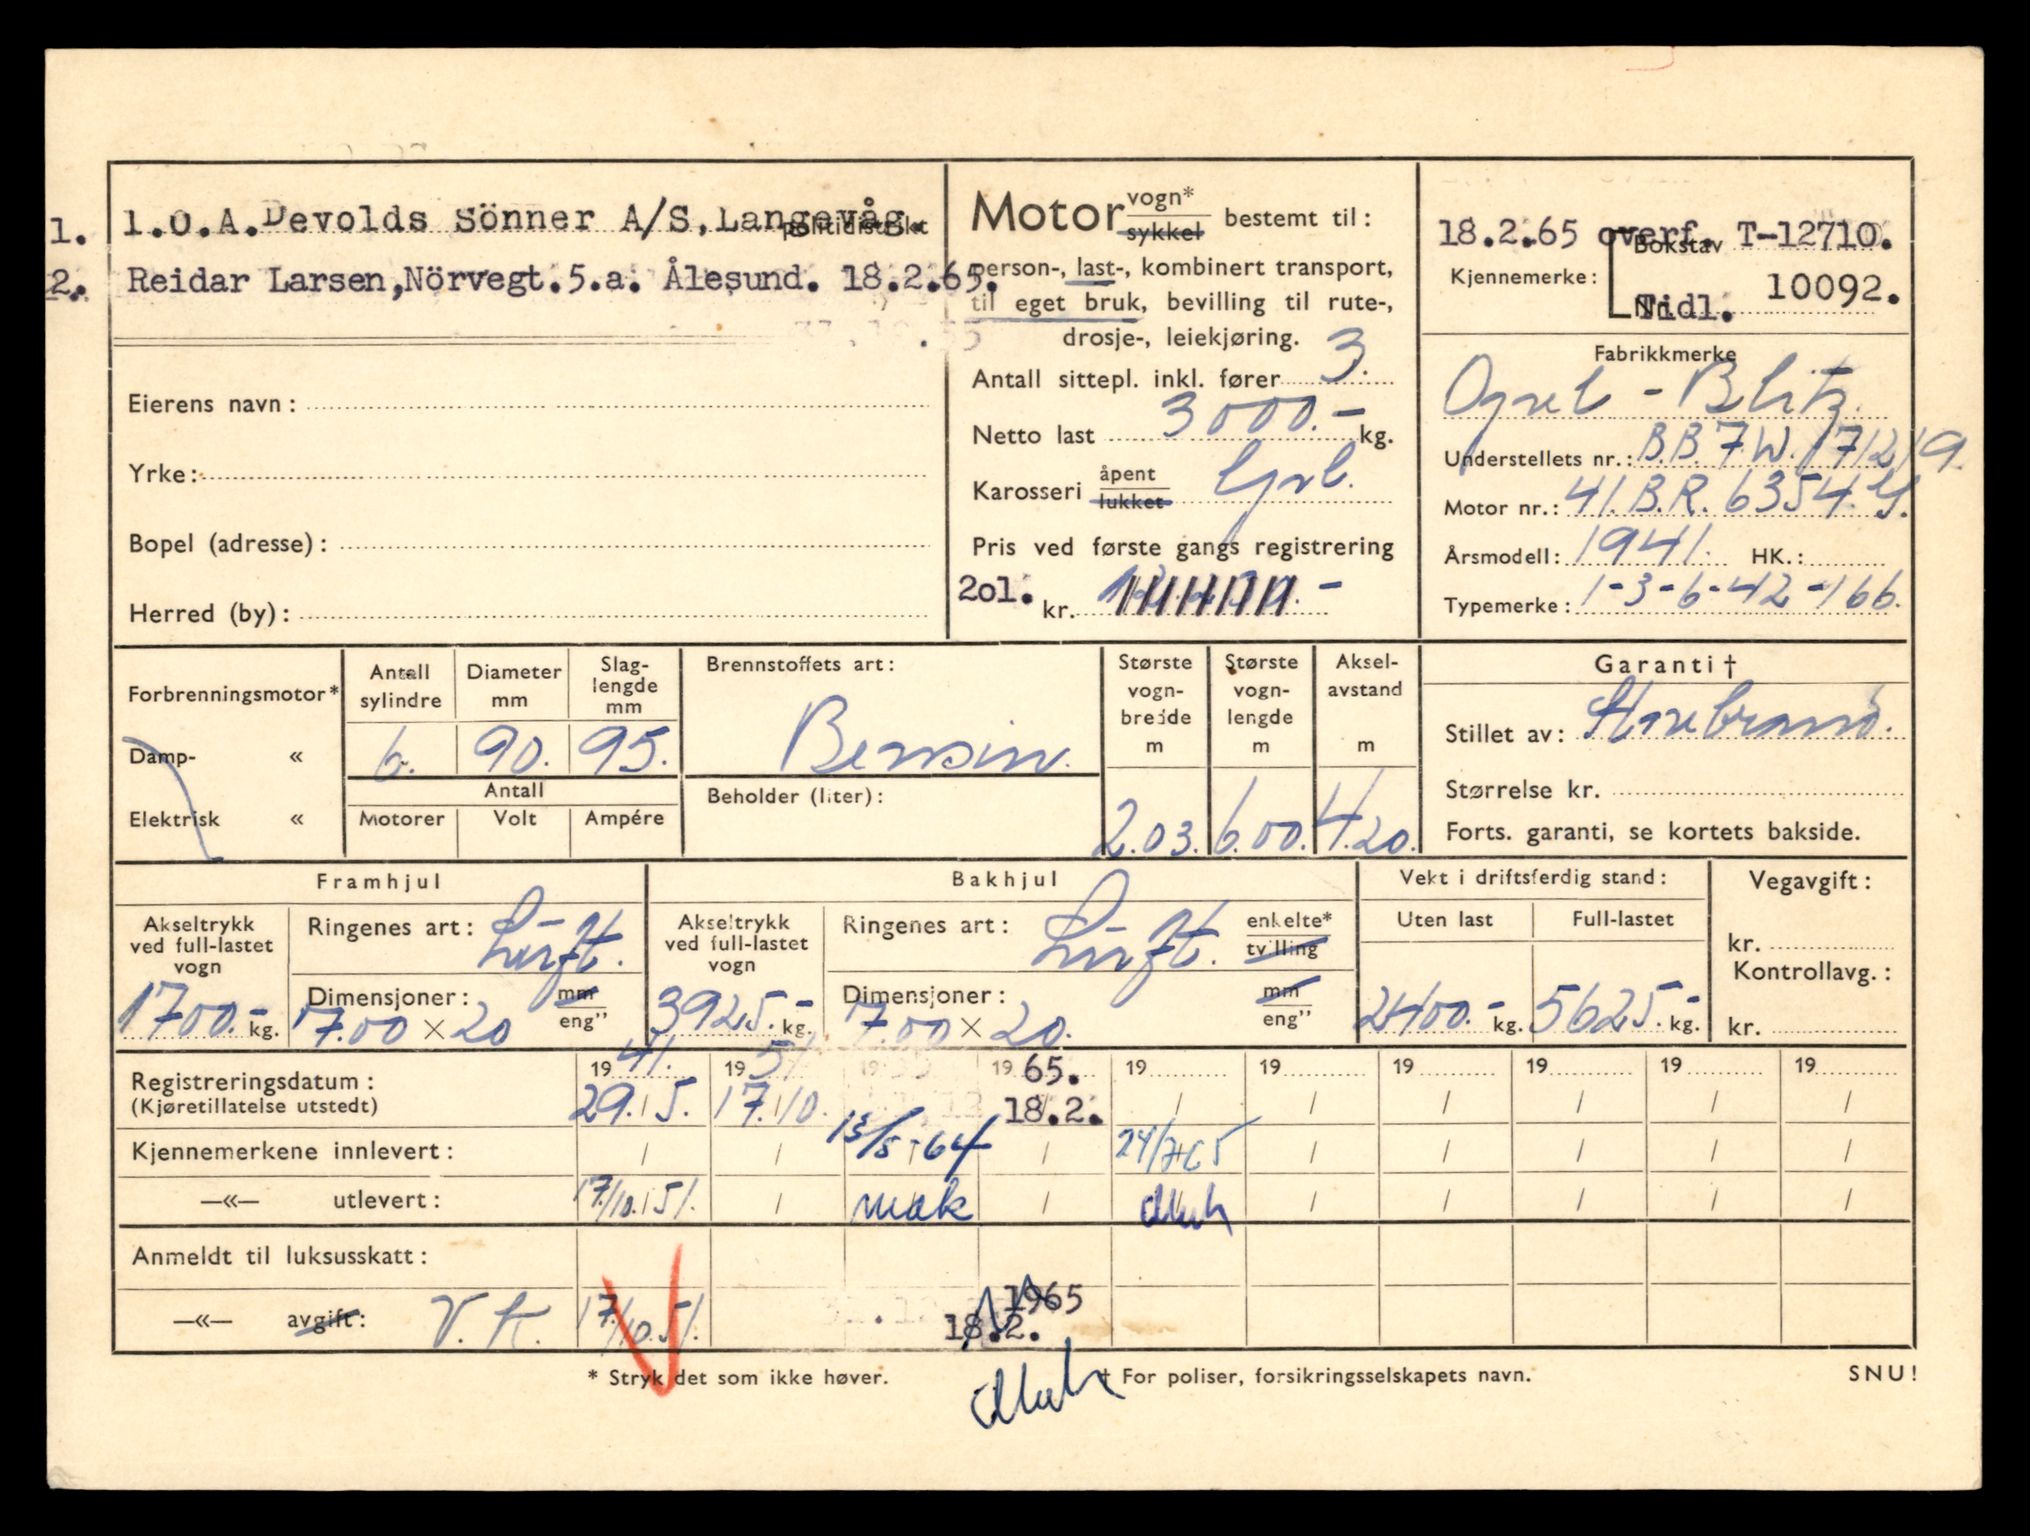 1. 1.O.A.Devolds Sönner A/S,Langevåg.
politidistrikt
2. Reidar Larsen,Nörvegt.5.a. Ålesund. 18.2.65.
Eierens navn:
Yrke:
Bopel (adresse):
Herred (by):
Motor vogn* sykkel bestemt til:
person-, last-, kombinert transport,
til eget bruk, bevilling til rute-,
drosje-, leiekjøring.
Antall sittepl. inkl. fører 3.
Netto last 3000.- kg.
Karosseri åpent lukket
Pris ved første gangs registrering
2ol. kr.
18.2.65 overf. T-12710.
Bokstav
Kjennemerke:
Nr. Tidl. 10092.
Fabrikkmerke
Opel - Blitz.
Understellets nr.: B.B.7.W.171219.
Motor nr.: 41.B.R. 6354.
Årsmodell: 1941. HK.:
Typemerke: 1-3-6-42-166.
Forbrenningsmotor*
Damp- «
Elektrisk «
Antall sylindre
6.
Diameter mm
90.
Slaglengde mm
95.
Antall
Motorer Volt Ampére
Brennstoffets art:
Bensin.
Beholder (liter):
Største vognbreide m
2.03.
Største vognlengde m
6.00.
Akselavstand m
4.20.
Garanti †
Stillet av: Storebrand.
Størrelse kr.
Forts. garanti, se kortets bakside.
Framhjul
Akseltrykk ved full-lastet vogn
1700.- kg.
Ringenes art: Luft.
Dimensjoner: mm eng”
7.00 × 20
Bakhjul
Akseltrykk ved full-lastet vogn
3925.- kg.
Ringenes art: Luft. enkelte* tvilling
Dimensjoner: mm eng”
7.00 × 20.
Vekt i driftsferdig stand:
Uten last Full-lastet
2400.- kg. 5625.- kg.
Vegavgift:
kr.
Kontrollavg.:
kr.
Registreringsdatum: 19 41. 19 51 19 19 65. 19 19 19 19 19 19
(Kjøretillatelse utstedt) 29./5. 17./10. 18.2.
Kjennemerkene innlevert: 13/5-64 24/7 65
—«— utlevert: 17./10.51. mak
Anmeldt til luksusskatt:
—«— avgift: V.K. 17./10.51. 1965
18.2.
* Stryk det som ikke høver.
† For poliser, forsikringsselskapets navn.
SNU!